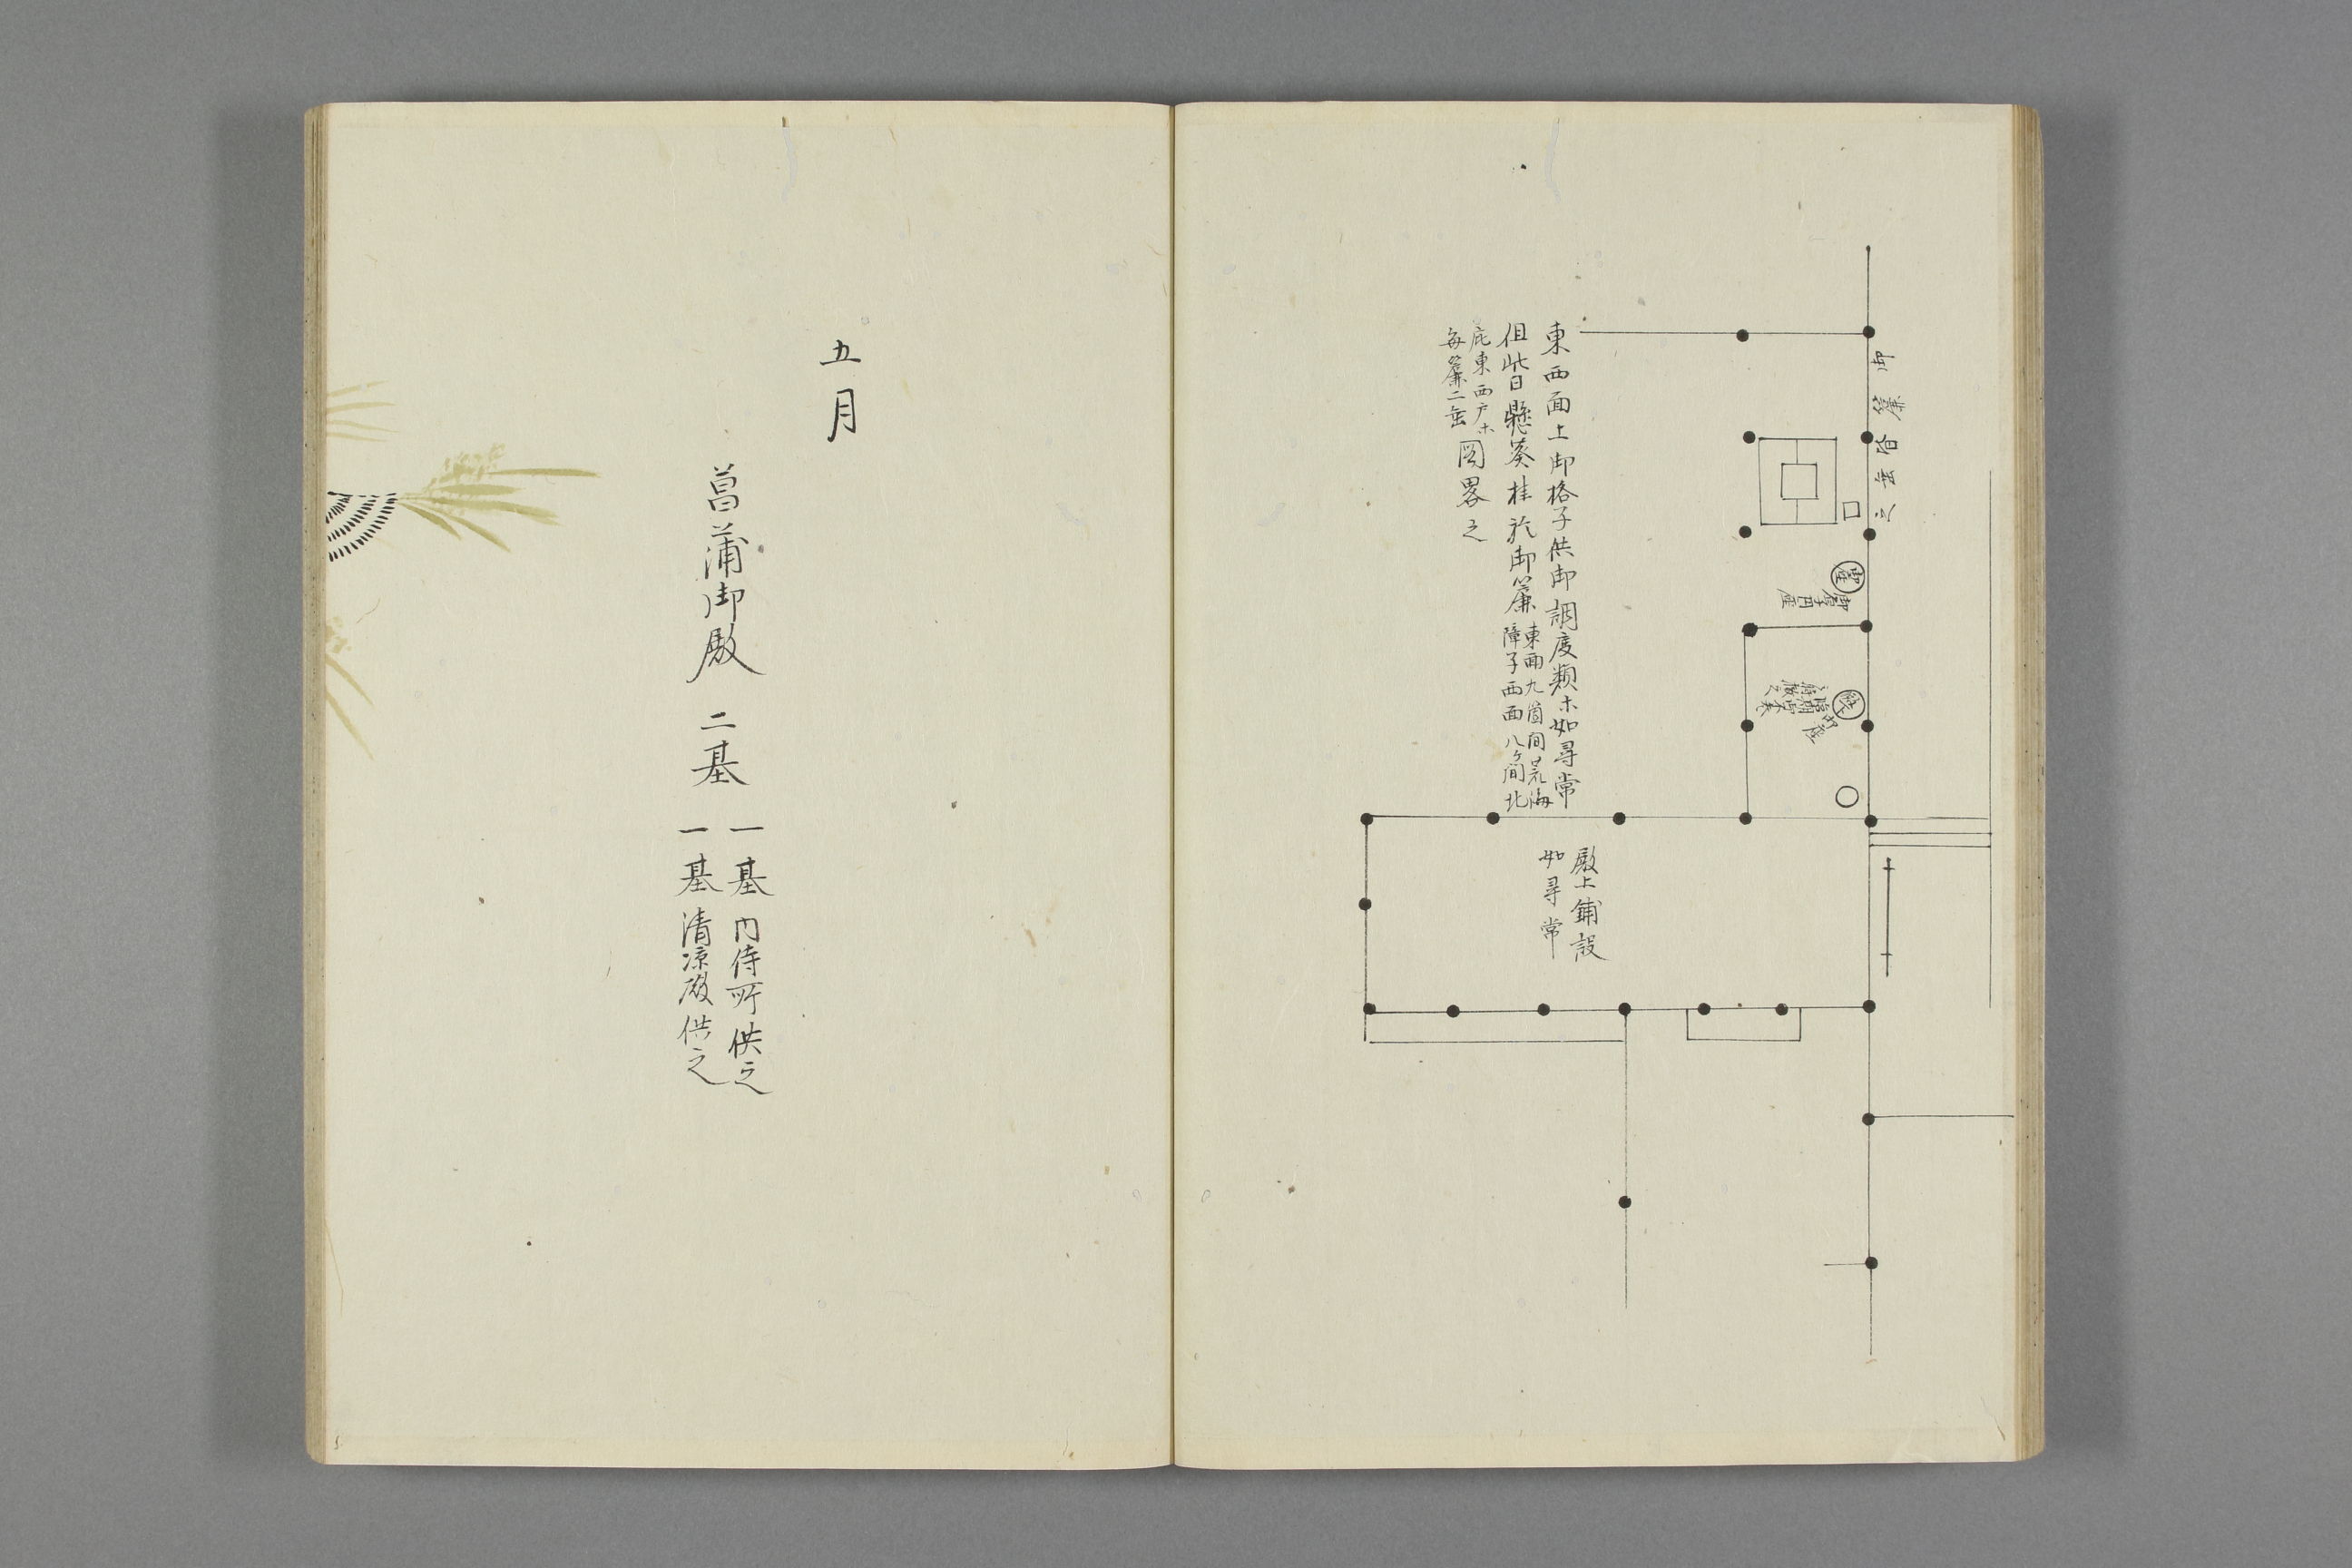 御簾皆垂之
御厨子円座
東西面上御格子供御調度類ホ如尋常
但此日懸葵桂於御簾
東面九箇間荒海
障子西面八ケ間北
庇東西戸ホ
毎簾二垂
図畧之
殿上鋪設
如尋常
五月
菖蒲御殿 二基
一基 内侍所供之
一基 清凉殿供之